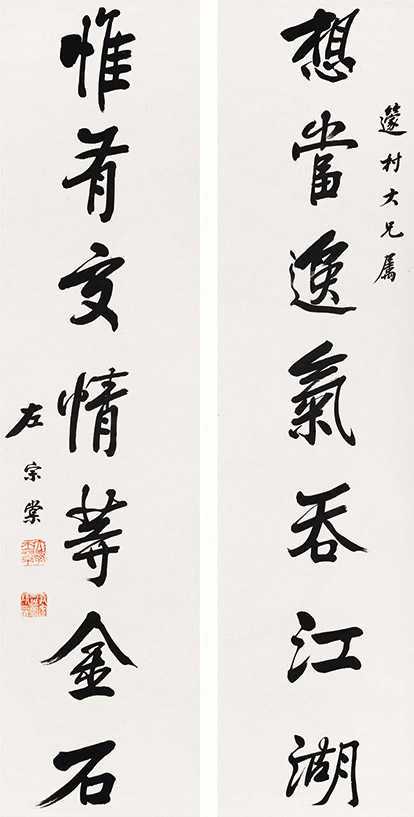 篴村大兄属
想當逸氣吞江湖
惟有交情等金石
左宗棠